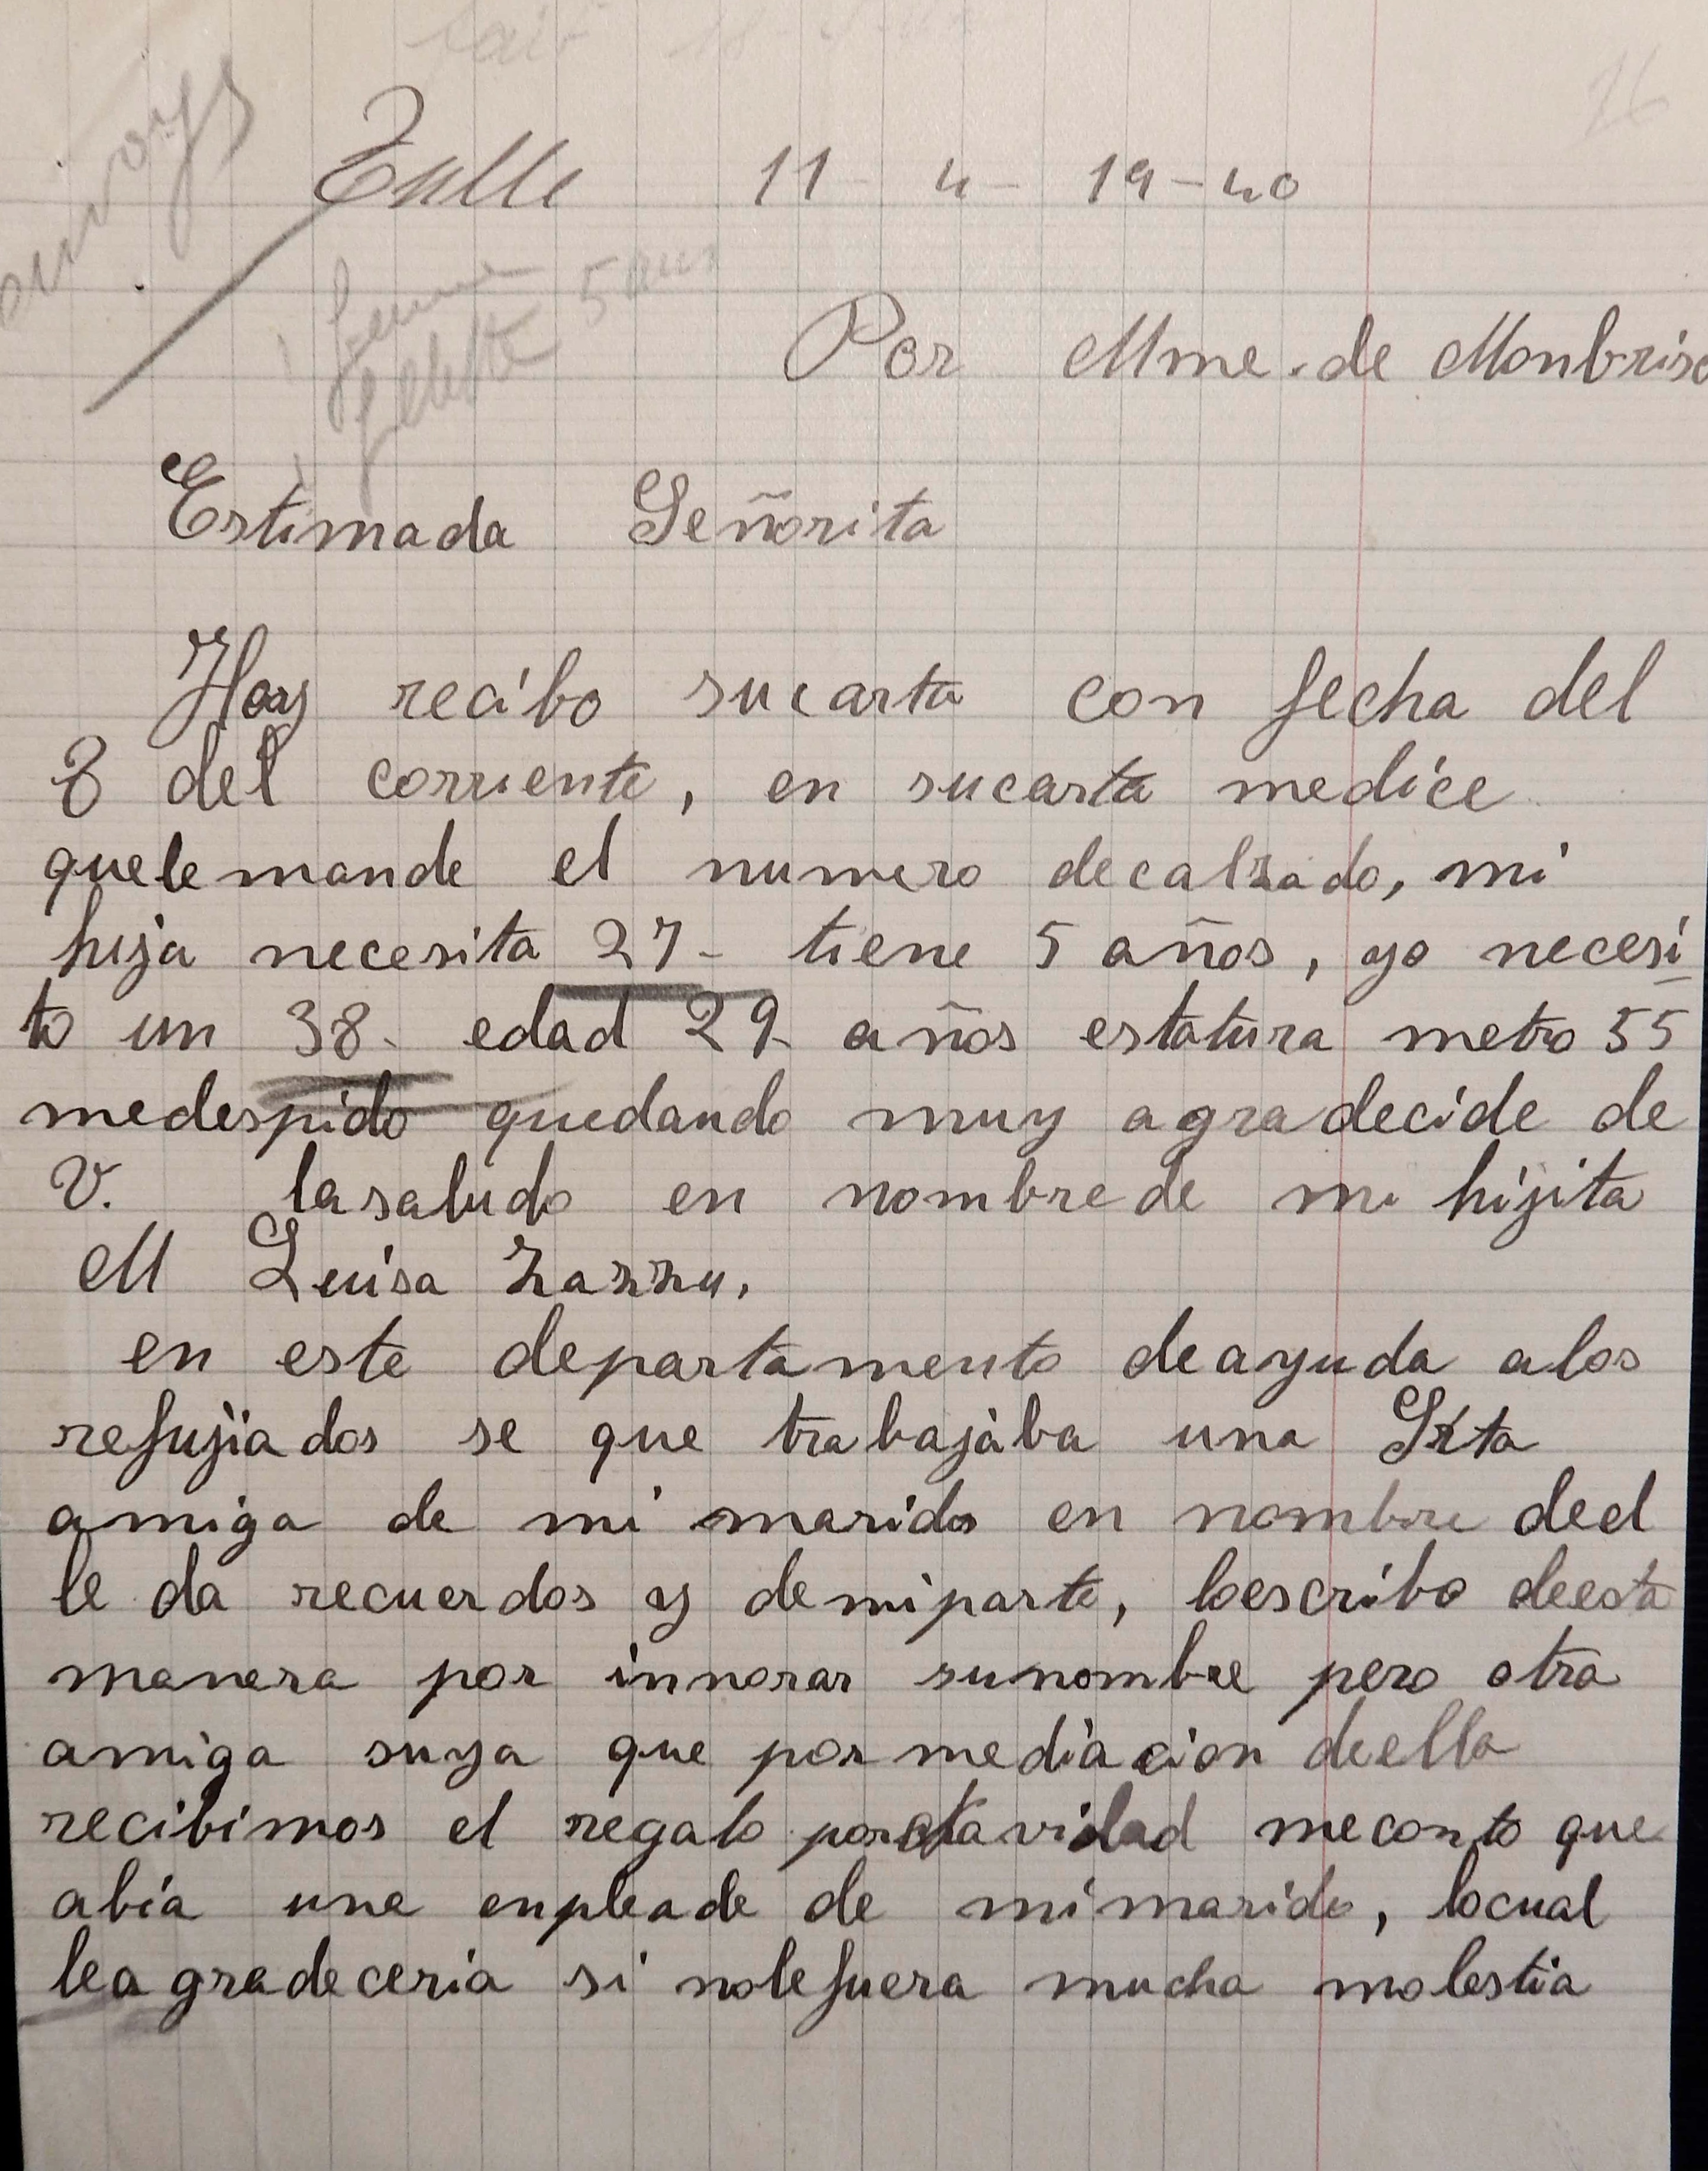 Tulle 11 - 4 - 19 - 40
5 ans
fillette
Por Mme. de Monbriso
Estimada Señorita
Hoy recibo sucarta con fecha del
8 del corriente, en sucarta medice
quele mande el numero decalzado, mi
hija necesita 27 - tiene 5 años, yo necesi
to un 38 - edad 29 - años estatura metro 55
medespido quedando muy agradecida de
V. lasaludo en nombre de mi hijita
M Luisa
en este departamento deayuda alos
refujiados se que trabajába una Srta
amiga de mi marido en nombre deel
le da recuerdos y demiparte, loescribo deesta
manera por innorar sunombre pero otra
amiga suya que por mediacion deella
recibimos el regalo por Navidad meconto que
abia una enpleada de mimarido, locual
leagradeceria si nolefuera mucha molestia